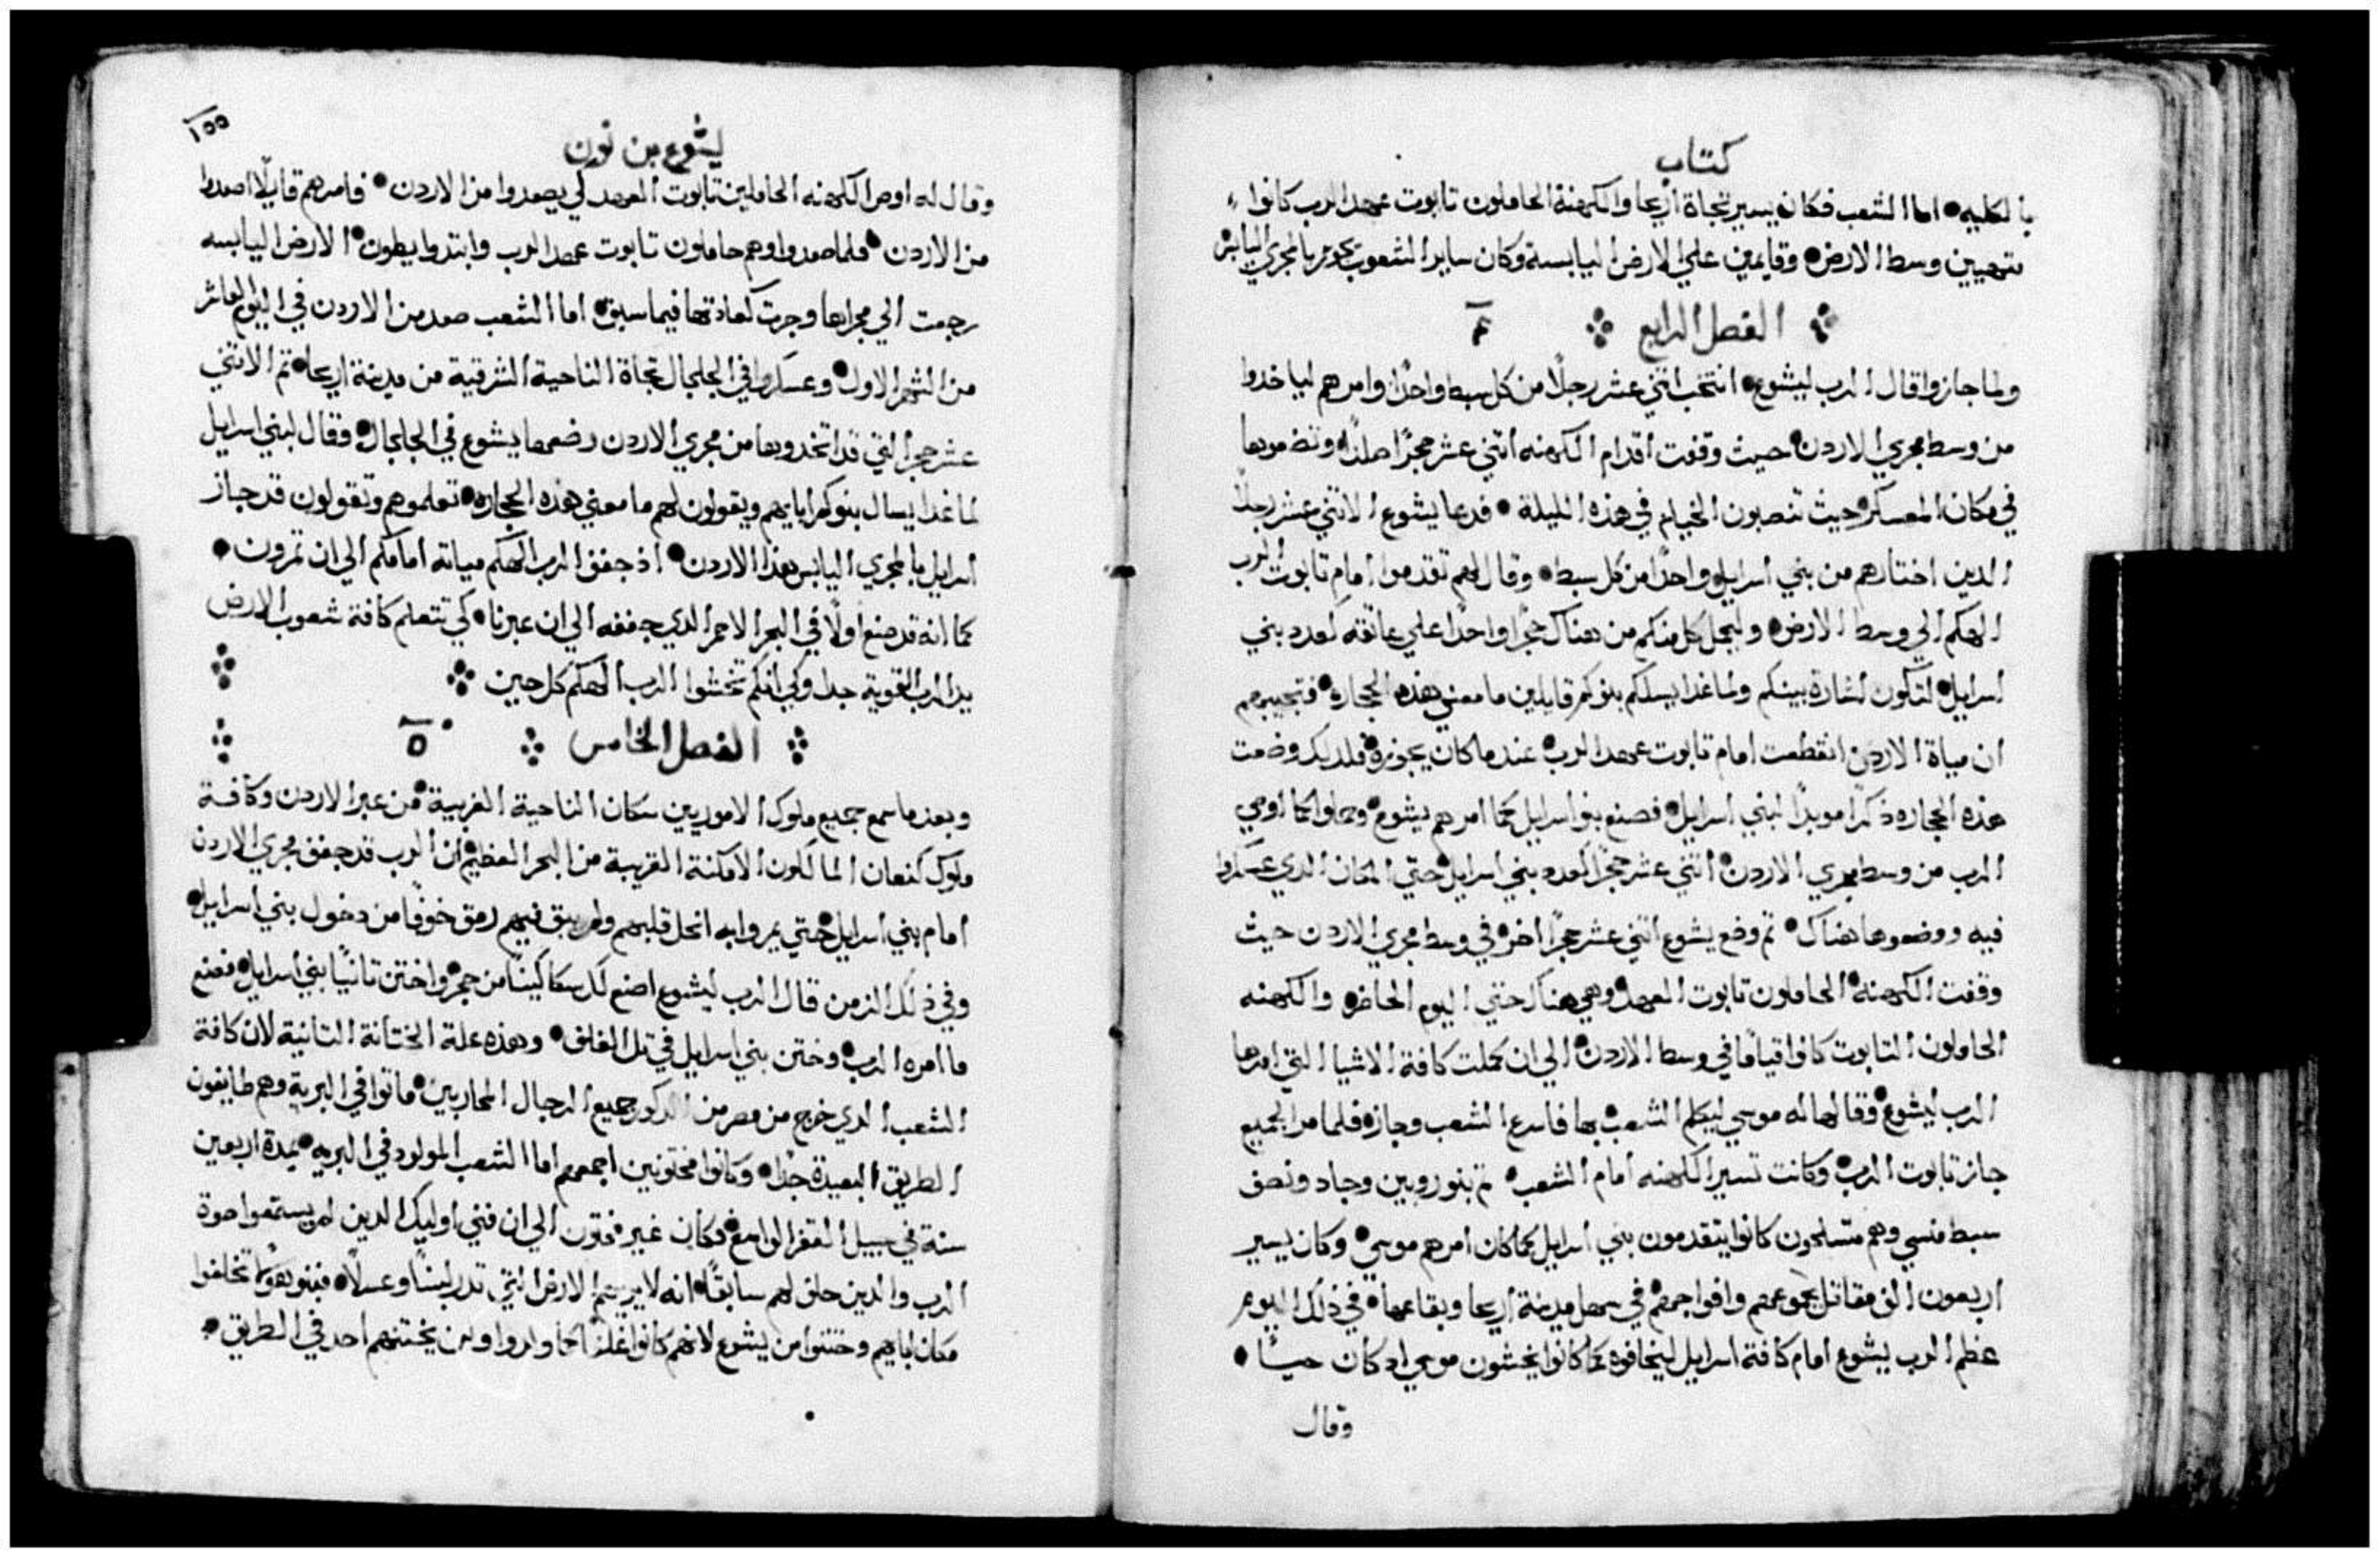 كتاب
بالكليه اما الشعب فكان يسير تجاة اريحا والكهنة الحاملون تابوت عهد الرب كانوا
متهيين وسط الارض وقايمين علي الارض اليابسة وكان ساير الشعوب يجوز بالمجري اليابس
الفصل الرابع ٤
ولما جازوا قال الرب ليشوع انتخب اتني عشر رجلًا من كل سبط واحدًا وامرهم لياخدوا
من وسط مجري الاردن حيث وقفت اقدام الكهنه اتني عشر حجرًا صلدًا وتضعوها
في مكان المعسكر حيث تنصبون الخيام في هذه الليلة فدعا يشوع الاتني عشر رجلًا
الدين اختارهم من بني اسرايل واحدًا من كل سبط وقال لهم تقدموا امام تابوت الرب
الهكم الي وسط الارض وليحمل كل منكم من هناك حجرًا واحدًا علي عاتقه كعدد بني
اسرايل لتكون اشارة بينكم ولما غدا يسلكم بنوكم قايلين ما معني هذه الحجاره فتجيبوهم
ان مياة الاردن انقطعت امام تابوت عهد الرب عندما كان يجوزه فلديك وضعت
هذه الحجاره ذكرًا موبدًا لبني اسرايل فصنع بنو اسرايل كما امرهم يشوع وحملوا كما اوصي
الرب من وسط مجري الاردن اتني عشر حجرًا كعدد بني اسرايل حتي المكان الدي عسكروا
فيه ووضعوها هناك تم وضع يشوع اتني عشر حجرًا اخر في وسط مجري الاردن حيث
وقفت الكهنه الحاملون تابوت العهد وهي هناك حتي اليوم الحاضر والكهنه
الحاملون التابوت كانوا قيامًا في وسط الاردن الي ان كملت كافة الاشيا التي امرها
الرب ليشوع وقالها له موسي ليكلم الشعب بها فاسرع الشعب وجاز فلما مر الجميع
جاز تابوت الرب وكانت تسير الكهنه امام الشعب تم بنو روبين وجاد ونصف
سبط منسي وهم متسلحون كانوا يتقدمون بني اسرايل كما كان امرهم موسي وكان يسير
اربعون الف مقاتل بجموعهم وافواجهم في سهل مدينة اريحا وبقاعها في ذلك اليوم
عظم الرب يشوع امام كافة اسرايل ليخافوه كما كانوا يخشون موسي اد كان حيًا
وقال
يشوع بن نون
١٥٥
وقال له اوص الكهنه الحاملين تابوت العهد لكي يصعدوا من الاردن فامرهم قايلًا اصعدوا
من الاردن فلما صعدوا وهم حاملون تابوت عهد الرب وابتدوا يطون الارض اليابسه
رجعت الي مجراها وجرت كعادتها فيما سبق اما الشعب صعد من الاردن في اليوم العاشر
من الشهر الاول وعسكروا في الجلجال تجاة الناحية الشرقية من مدينة اريحا تم الاتني
عشر حجر التي قد اتخدوها من مجري الاردن رضعها يشوع في الجلجال وقال لبني اسرايل
لما غدا يسال بنوكم اباييهم ويقولون لهم ما معني هذه الحجاره تعلموهم وتقولون قد جاز
اسرايل بالمجري اليابس هذا الاردن اذ جفف الرب الهكم مياته امامكم الي ان تمرون
كما انه قد صنع اولًا في البحر الاحمر الدي جففه الي ان عبرنا كي تتعلم كافة شعوب الارض
يد الرب القوية جدا ولكي انكم تخشوا الرب الهكم كل حين
الفصل الخامس ٥
وبعد ما سمع جميع ملوك الاموريين سكان الناحية الغربية من عبر الاردن وكافة
ملوك كنعان المالكون الامكنة القريبة من البحر العظيم ان الرب قد جفف مجري الاردن
امام بني اسرايل حتي يمروا به انحل قلبهم ولم يبق فيهم رمق خوفًا من دخول بني اسرايل
وفي ذلك الزمن قال الرب ليشوع اصنع لك سكاكينًا من حجر واختن تانيًا بني اسرايل فصنع
ما امره الرب وختن بني اسرايل في تل الغلف وهذه علة الختانة التانية لان كافة
الشعب الدي خرج من مصر من الدكور جميع الرجال المحاربين ماتوا في البرية وهم طايفون
الطريق البعيدة جدًا وكانوا مختونين اجمعهم اما الشعب المولود في البريه بمدة اربعين
سنة في سبيل القفر الواسع فكان غير مختون الي ان فني اوليك الدين لم يستمعوا صوة
الرب والدين حلف لهم سابقًا انه لا يريهم الارض التي تدر لبنًا وعسلًا فبنو هولا تخلفوا
مكان اباهم وختنوا من يشوع لانهم كانوا غلفًا كما ولدوا ولم يختنهم احد في الطريق